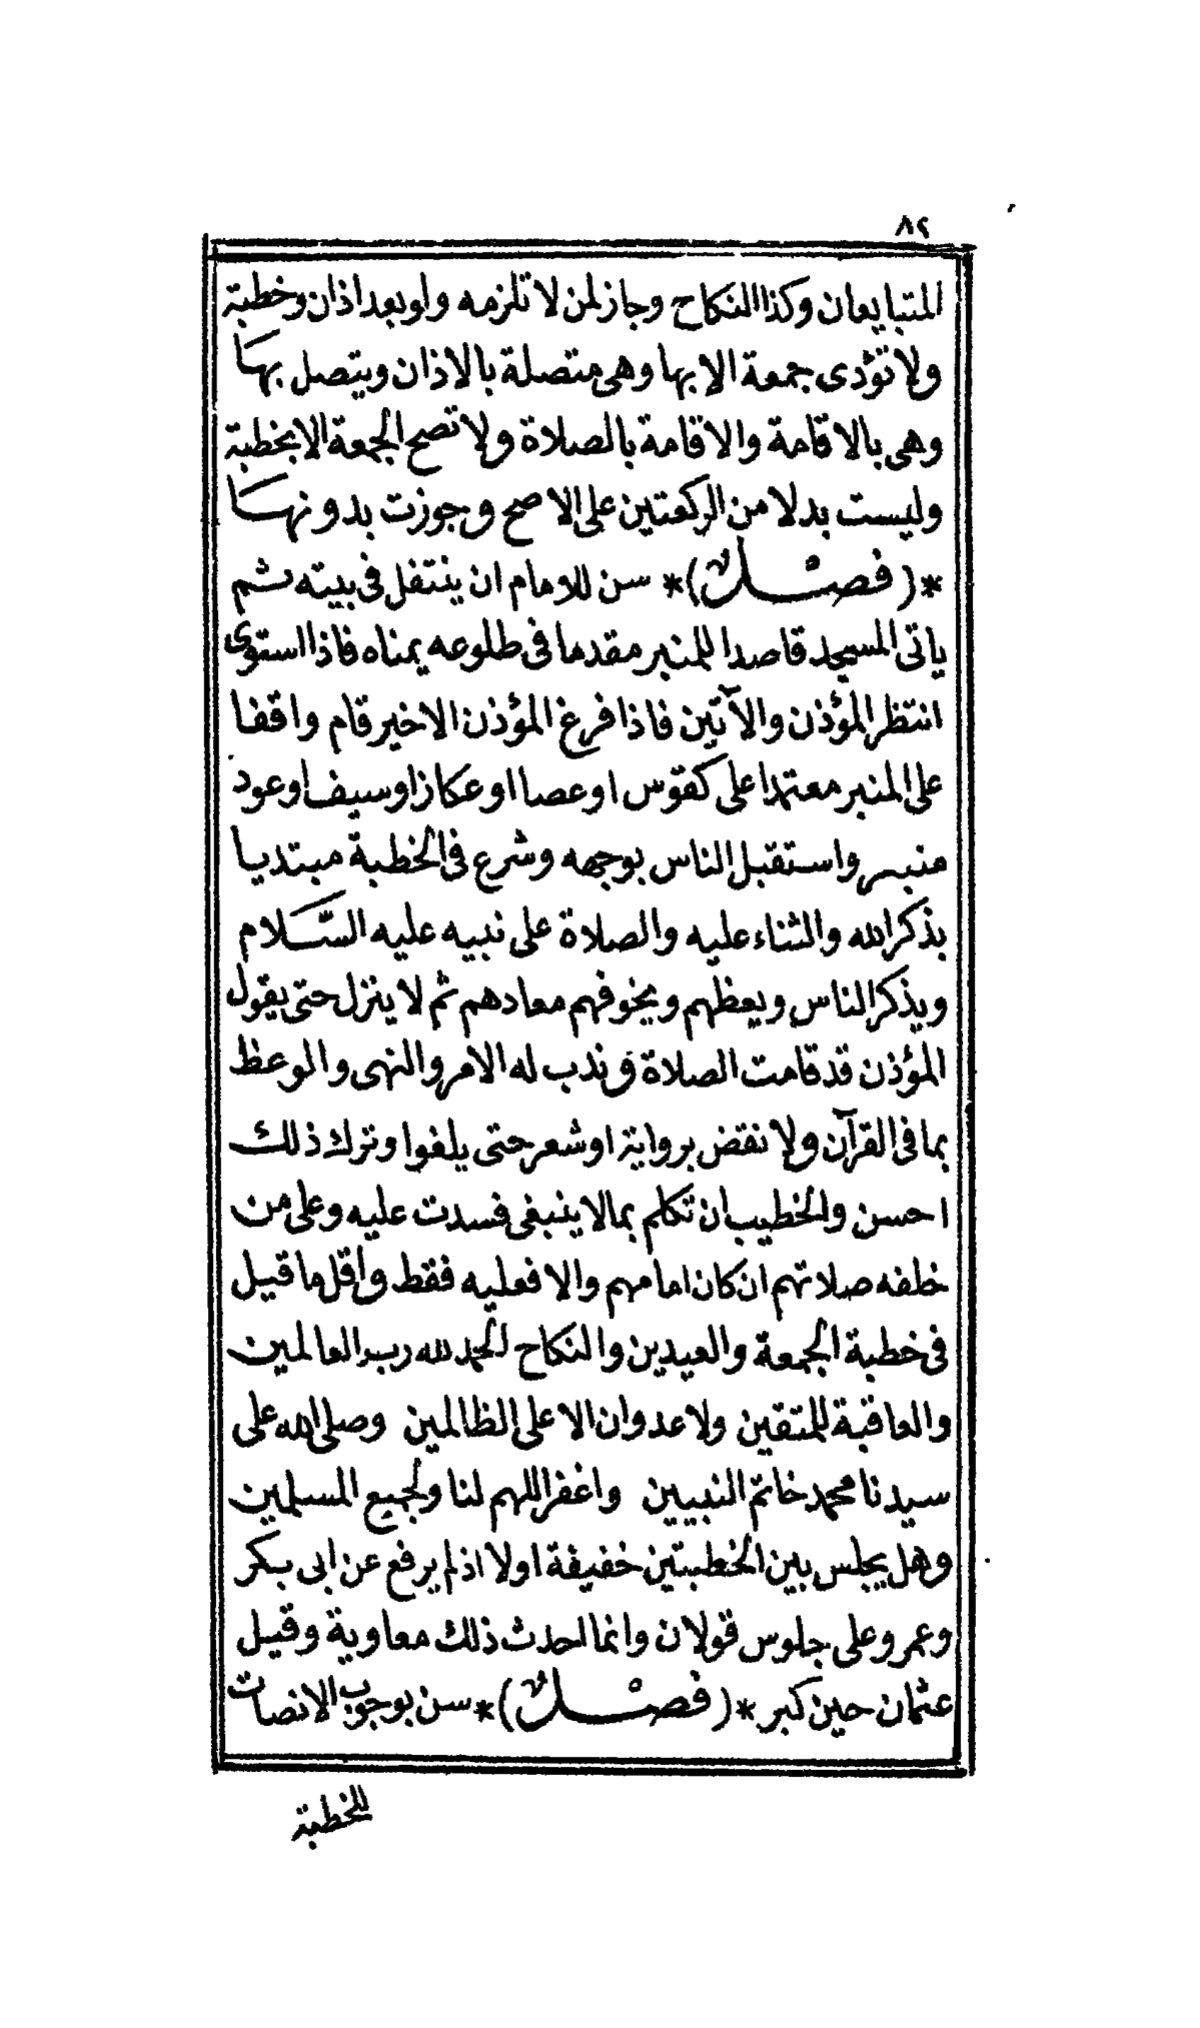 ٨٢
المتبايعان وكذا النكاح وجاز لمن لا تلزمه ولو بعد اذان وخطبة
ولا تؤدى جمعة الا بها وهى متصلة بالاذان ويتصل بها
وهى بالاقامة والاقامة بالصلاة ولا تصح الجمعة الا بخطبة
وليست بدلا من الركعتين على الاصح وجوزت بدونها
*(فصل)* سن للامام ان ينتفل فى بيته ثم
ياتى المسجد قاصدا للمنبر مقدما فى طلوعه يمناه فاذا استوى
انتظر المؤذن والآتين فاذا فرغ المؤذن الاخير قام واقفا
على المنبر معتمدا على كقوس او عصا او عكاز او سيف او عود
منبر واستقبل الناس بوجهه وشرع فى الخطبة مبتديا
بذكر الله والثناء عليه والصلاة على نبيه عليه السّلام
ويذكر الناس ويعظهم ويخوفهم معادهم ثم لا ينزل حتى يقول
المؤذن قد قامت الصلاة وندب له الامر والنهى والوعظ
بما فى القرآن ولا نقض برواية او شعر حتى يلغوا وترك ذلك
احسن والخطيب ان تكلم بما لا ينبغى فسدت عليه وعلى من
خلفه صلاتهم ان كان امامهم والا فعليه فقط واقل ما قيل
فى خطبة الجمعة والعيدين والنكاح الحمد لله رب العالمين
والعاقبة للمتقين ولا عدوان الا على الظالمين وصلى الله على
سيدنا محمد خاتم النبيين واغفر اللهم لنا ولجميع المسلمين
وهل يجلس بين الخطبتين خفيفة اولا اذ لم يرفع عن ابى بكر
وعمر وعلى جلوس قولان وانما احدث ذلك معاوية وقيل
عثمان حين كبر *(فصل)* سن بوجوب الانصات
للخطبة